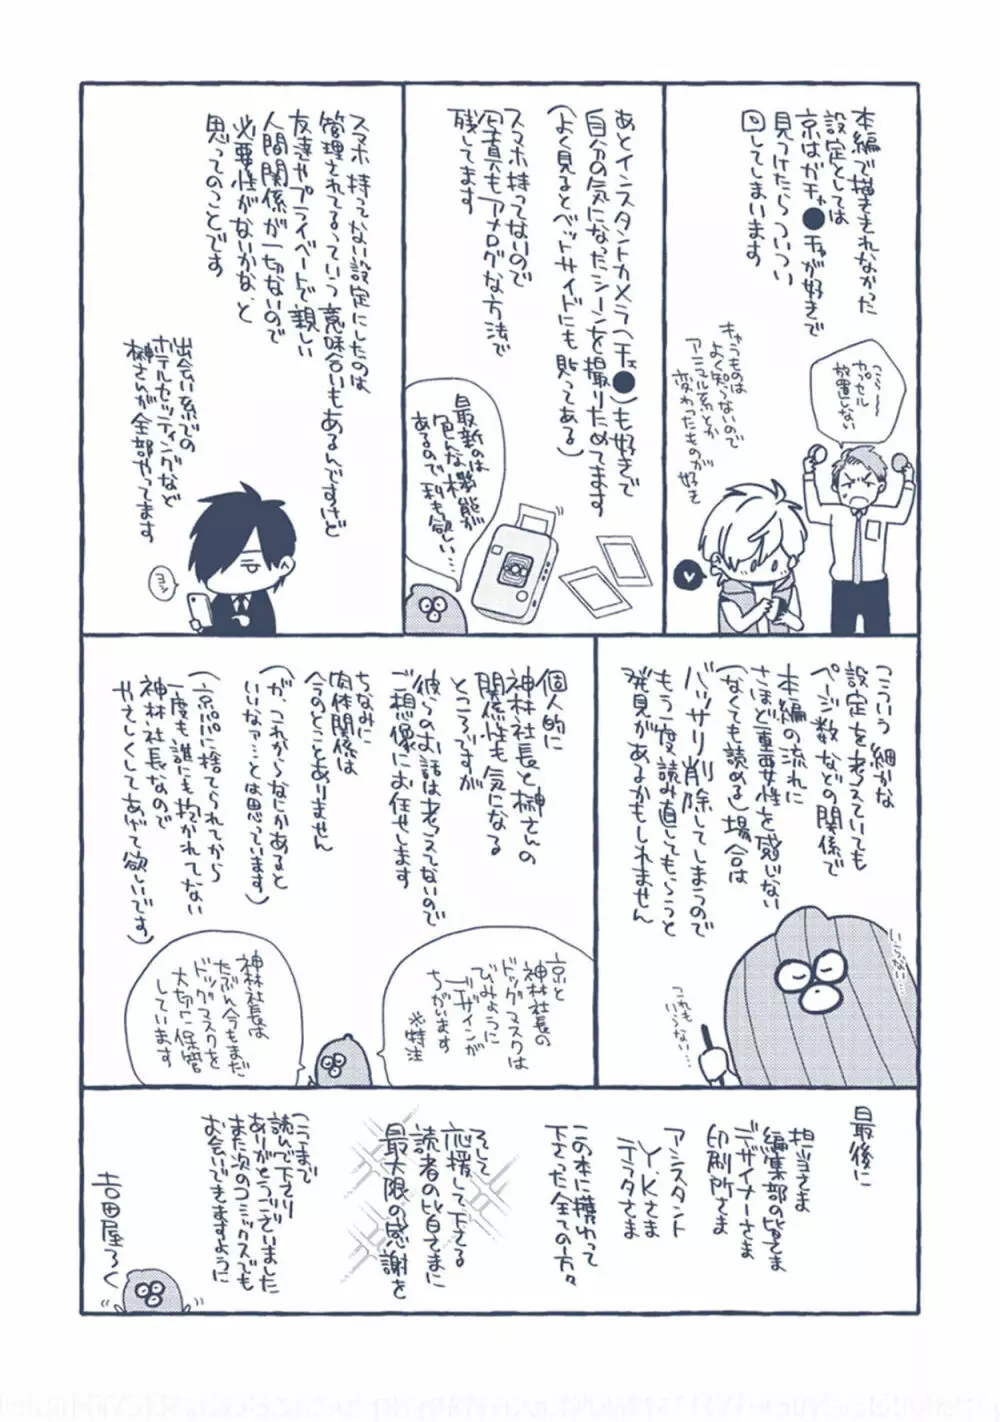 本編で描ききれなかった
設定としては
京はガチャ●チャが好きで
見つけたらついつい
回してしまいます
こら〜〜
カプセル
放置しない
キャラものは
よく知らないので
アニマル系とか
変わったものが
好き
あとインスタントカメラ(チェ●)も好きで
自分の気になったシーンを撮りためてます
(よく見るとベットサイドにも貼ってある)
スマホ持ってないので
写真もアナログな方法で
残してます
最新のは
色んな機能が
あるので私も欲しい…
スマホ持ってない設定にしたのは
管理されてるっていう意味合いもあるんですけど
友達やプライベートで親しい
人間関係が一切ないので
必要性がないかな と
思ってのことです
出会い系での
ホテルセッティングなど
榊さんが全部やってます
ヨシ
こういう細かな
設定を考えていても
ページ数などの関係で
本編の流れに
さほど重要性を感じない
(なくても読める)場合は
バッサリ削除してしまうので
もう一度読み直してもらうと
発見があるかもしれません
いらない…
これも
いらない…
個人的に
神林社長と榊さんの
関係性も気になる
ところですが
彼らのお話は考えてないので
ご想像にお任せします
ちなみに
肉体関係は
今のとこありません
(が、これからなにかあると
いいなァ…とは思っています)
(京語に捨てられてから
一度も誰にも抱かれてない
神林社長なので
やさしくしてあげて欲しいです)
京と
神林社長の
ドッグマスクは
びみょうに
デザインが
ちがいます
※特注
神林社長は
たぶん今もまだ
ドッグマスクを
大切に保管
しています
最後に
担当さま
編集部の皆さま
デザイナーさま
印刷所さま
アシスタント
Y.Kさま
テラタさま
この本に携わって
下さった全ての方々
そして
応援して下さる
読者の皆さまに
最大限の感謝を
ここまで
読んで下さり
ありがとうございました
また次のコミックスでも
お会いできますように
吉田屋ろく